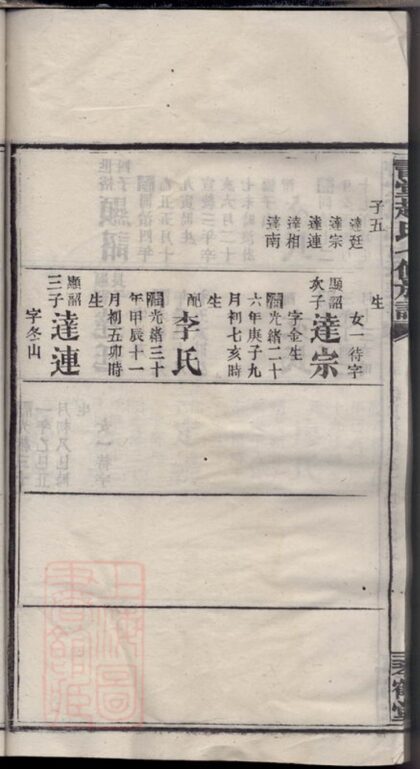 子五
達廷
達宗
達連
達相
達南
生
女一待字
顯詔
次子
達宗
字金生
光緒二十
六年庚子九
月初七亥時
生
配
李氏
光緒三十
年甲辰十一
月初五卯時
生
顯詔
三子
達連
字冬山
琴鶴堂
上海圖
書館藏